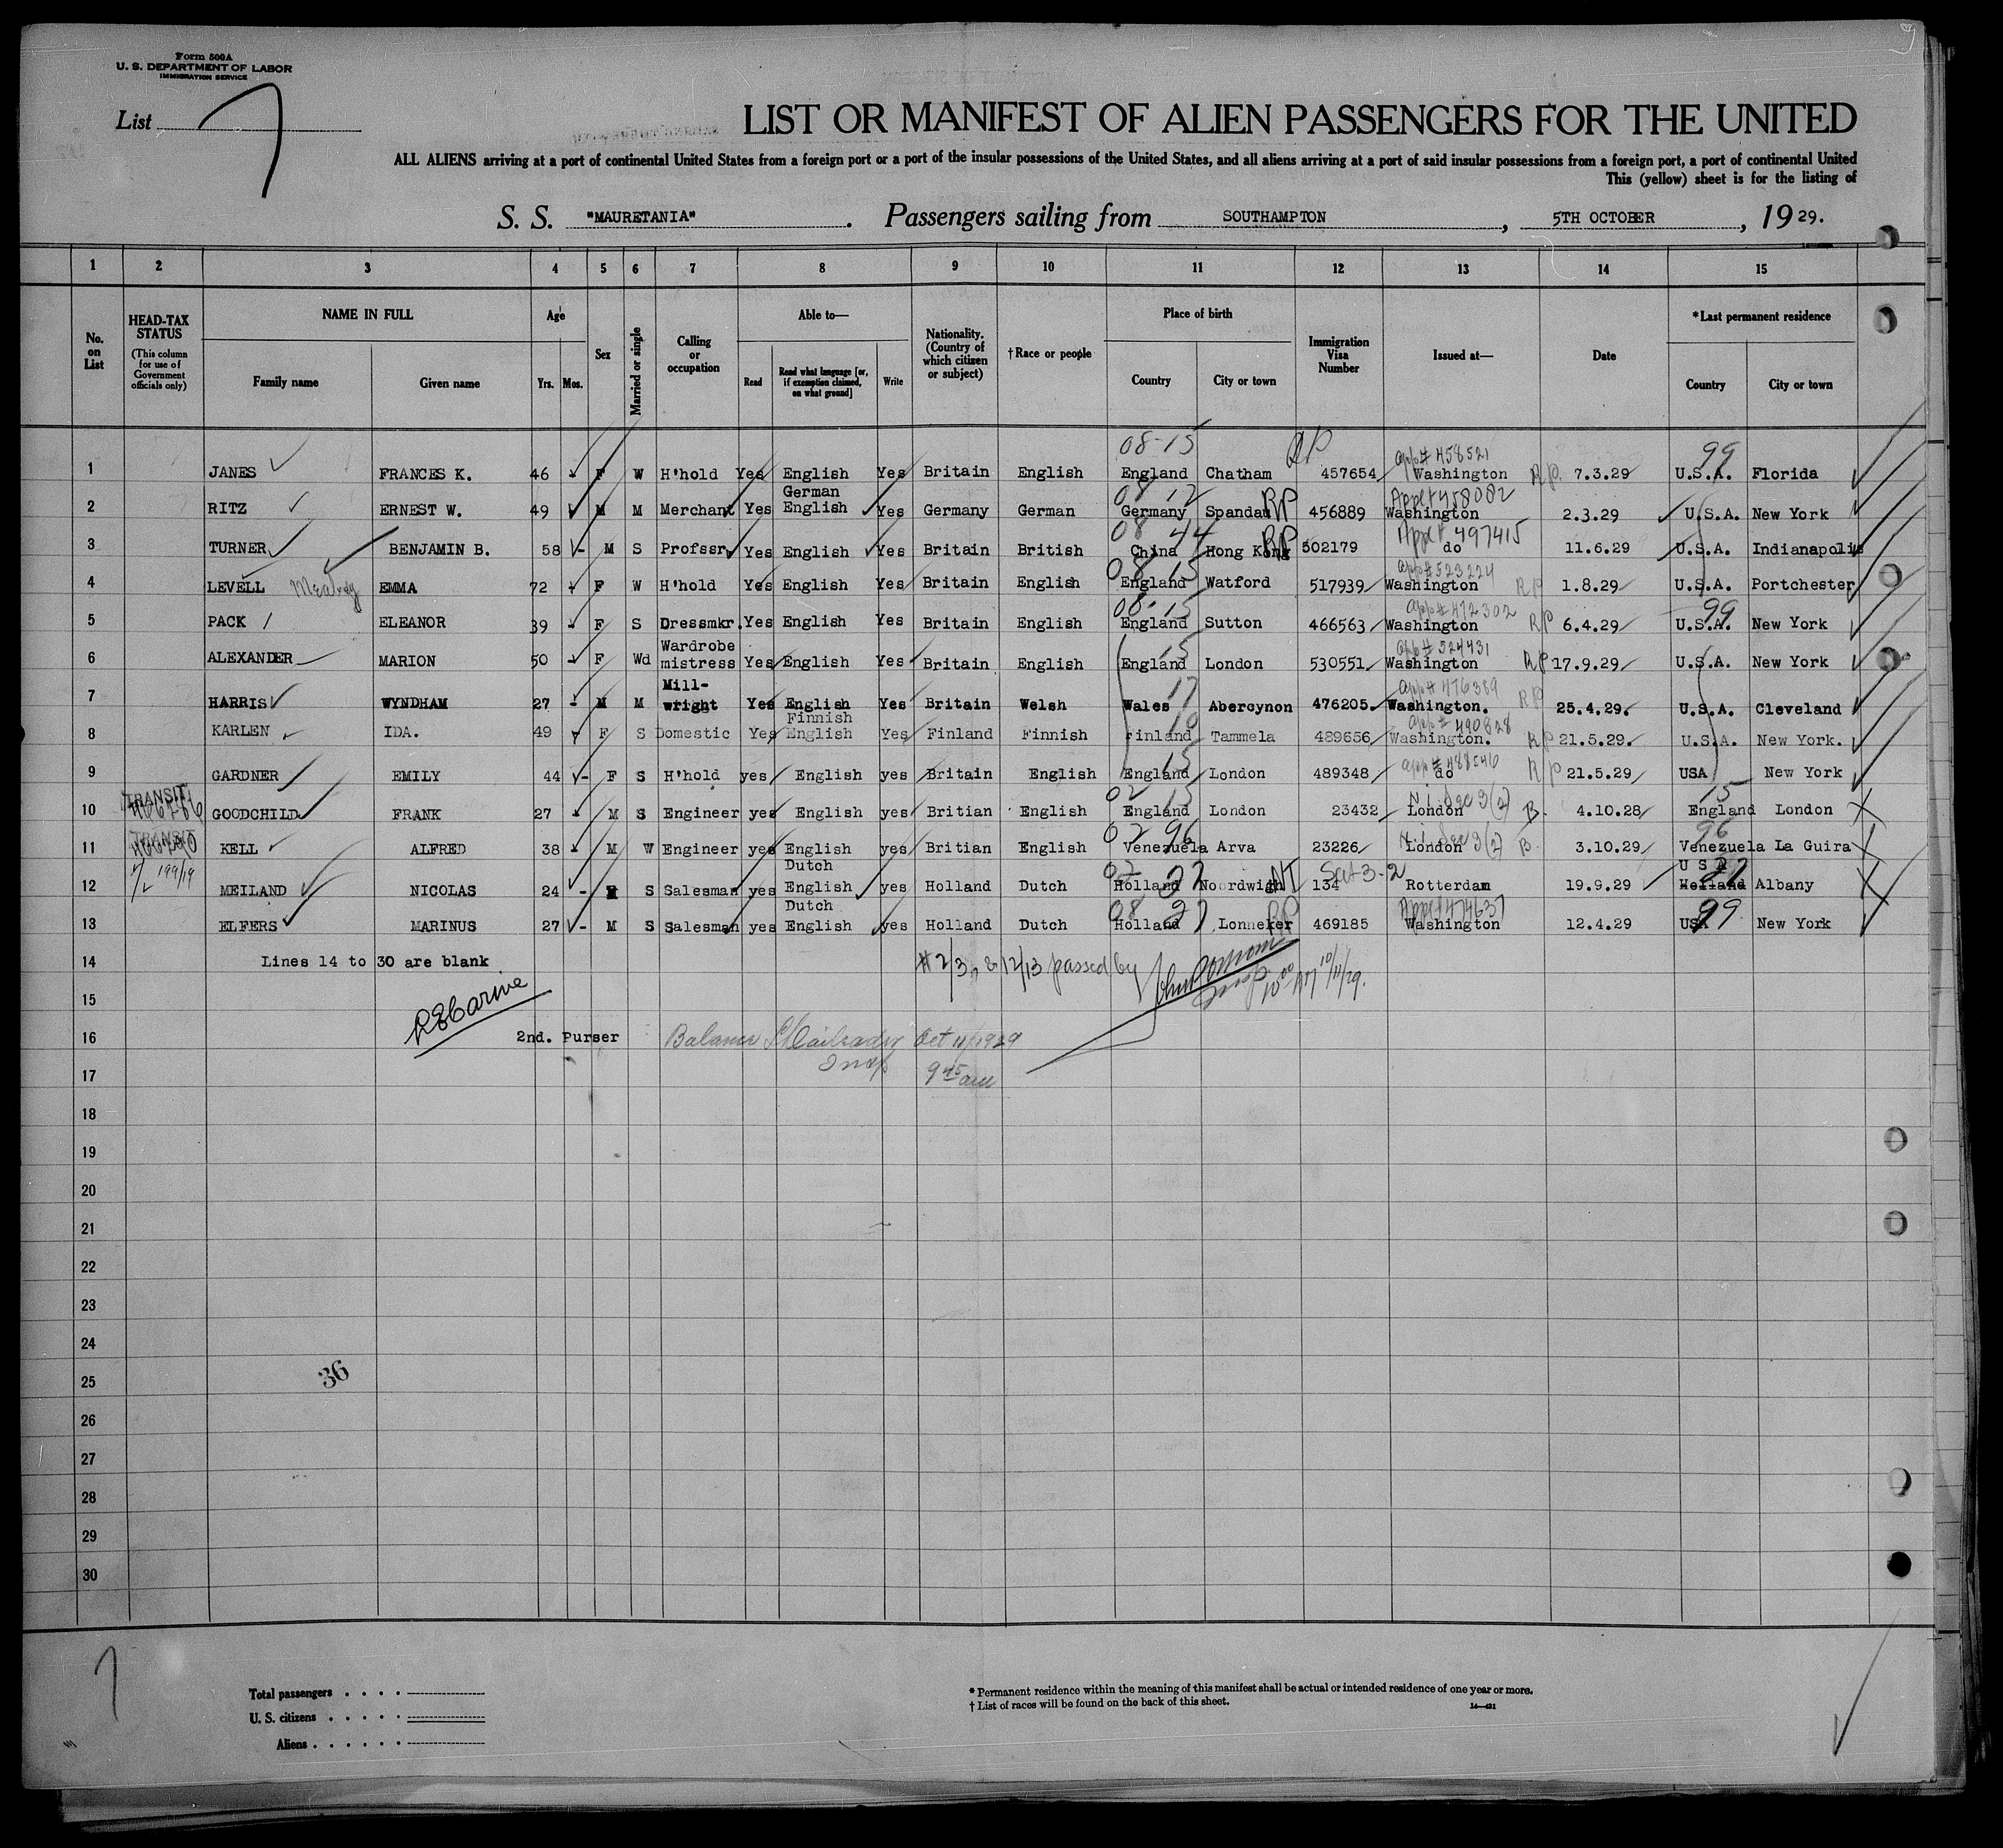 Form 500A
U. S. DEPARTMENT OF LABOR
IMMIGRATION SERVICE
List 7
LIST OR MANIFEST OF ALIEN PASSENGERS FOR THE UNITED
ALL ALIENS arriving at a port of continental United States from a foreign port or a port of the insular possessions of the United States, and all aliens arriving at a port of said insular possessions from a foreign port, a port of continental United
This (yellow) sheet is for the listing of
S. S. "MAURETANIA". Passengers sailing from SOUTHAMPTON, 5TH OCTOBER, 1929.
1 2 3 4 5 6 7 8 9 10 11 12 13 14 15
No. on List
HEAD-TAX STATUS
(This column for use of Government officials only)
NAME IN FULL
Family name
Given name
Age
Yrs. Mos.
Sex
Married or single
Calling or occupation
Able to—
Read
Read what language [or, if exemption claimed, on what ground]
Write
Nationality. (Country of which citizen or subject)
†Race or people
Place of birth
Country
City or town
Immigration Visa Number
Issued at—
Date
*Last permanent residence
Country
City or town
08-15 RP app# 458521 99
1 JANES FRANCES K. 46 - F W H'hold Yes English Yes Britain English England Chatham 457654 Washington RP 7.3.29 U.S.A. Florida
German 08 12 RP Appl# 458082
2 RITZ ERNEST W. 49 M M Merchant Yes English Yes Germany German Germany Spandau 456889 Washington 2.3.29 U.S.A. New York
08 44 RP Appl# 497415
3 TURNER BENJAMIN B. 58 - M S Profssr Yes English Yes Britain British China Hong Kong 502179 do 11.6.29 U.S.A. Indianapolis
08 15 app# 523224
4 LEVELL EMMA 72 - F W H'hold Yes English Yes Britain English England Watford 517939 Washington RP 1.8.29 U.S.A. Portchester
08-15 app# 472302 99
5 PACK ELEANOR 39 - F S Dressmkr. Yes English Yes Britain English England Sutton 466563 Washington RP 6.4.29 U.S.A. New York
Wardrobe 15 app# 524431
6 ALEXANDER MARION 50 - F Wd mistress Yes English Yes Britain English England London 530551 Washington RP 17.9.29 U.S.A. New York
Mill- 17 app# 476389
7 HARRIS WYNDHAM 27 - M M wright Yes English Yes Britain Welsh Wales Abercynon 476205. Washington. RP 25.4.29. U.S.A. Cleveland
Finnish 10 app# 490828
8 KARLEN IDA. 49 - F S Domestic Yes English Yes Finland Finnish Finland Tammela 489656 Washington. RP 21.5.29. U.S.A. New York.
15 app#
9 GARDNER EMILY 44 - F S H'hold yes English yes Britain English England London 489348 do RP 21.5.29 USA New York
TRANSIT 02 15 15
10 GOODCHILD FRANK 27 - M S Engineer yes English yes Britian English England London 23432 London B. 4.10.28 England London
TRANSIT 02 96 96
11 KELL ALFRED 38 - M W Engineer yes English yes Britian English Venezuela Arva 23226 London B. 3.10.29 Venezuela La Guira
Dutch 02 27 Sect 3-2 U S A 27
12 MEILAND NICOLAS 24 - M S Salesman yes English yes Holland Dutch Holland Noordwich 134 Rotterdam 19.9.29 Holland Albany
Dutch 08 27 RP Appl# 474637 99
13 ELFERS MARINUS 27 - M S Salesman yes English yes Holland Dutch Holland Lonneker 469185 Washington 12.4.29 USA New York
14 Lines 14 to 30 are blank #2/3, & 12/13 passed by
15 Insp 10 00 AM 10/11/29.
16 2nd. Purser Balance Oct 11/1929
17 Insp 9 45 am
18
19
20
21
22
23
24
25 36
26
27
28
29
30
7
Total passengers
U. S. citizens
Aliens
* Permanent residence within the meaning of this manifest shall be actual or intended residence of one year or more.
† List of races will be found on the back of this sheet.
14—421